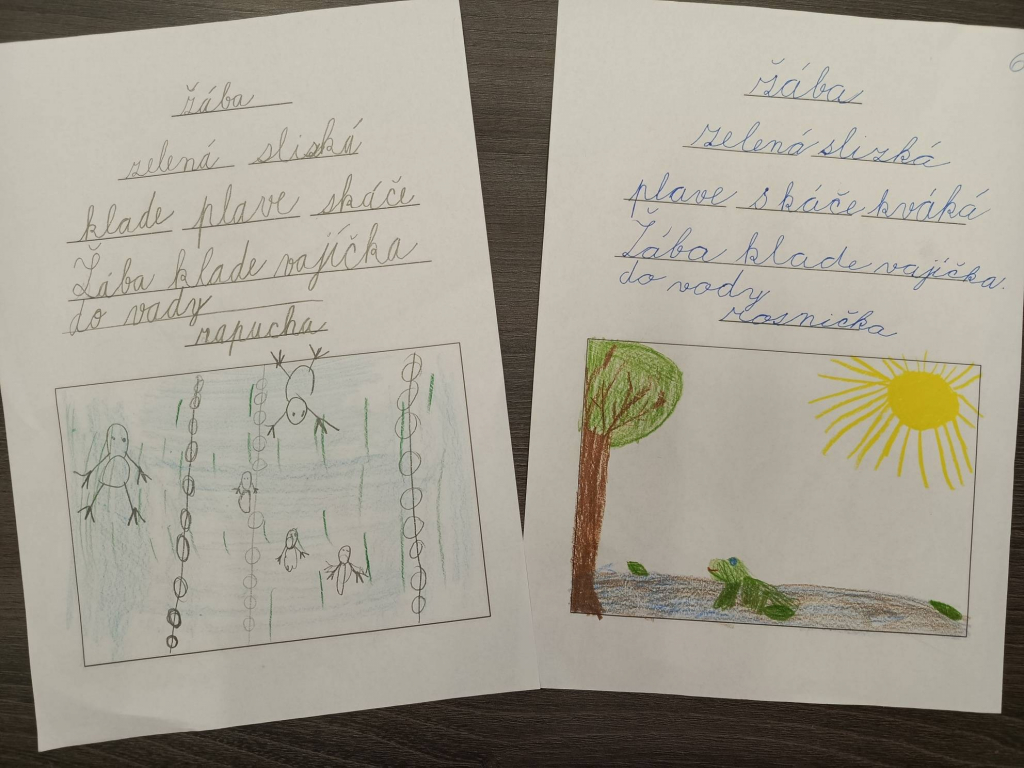 žába
zelená slizká
klade plave skáče
Žába klade vajíčka
do vady
rapucha
žába
zelená slizká
plave skáče kváká
Žába klade vajíčka.
do vody
rosnička
6